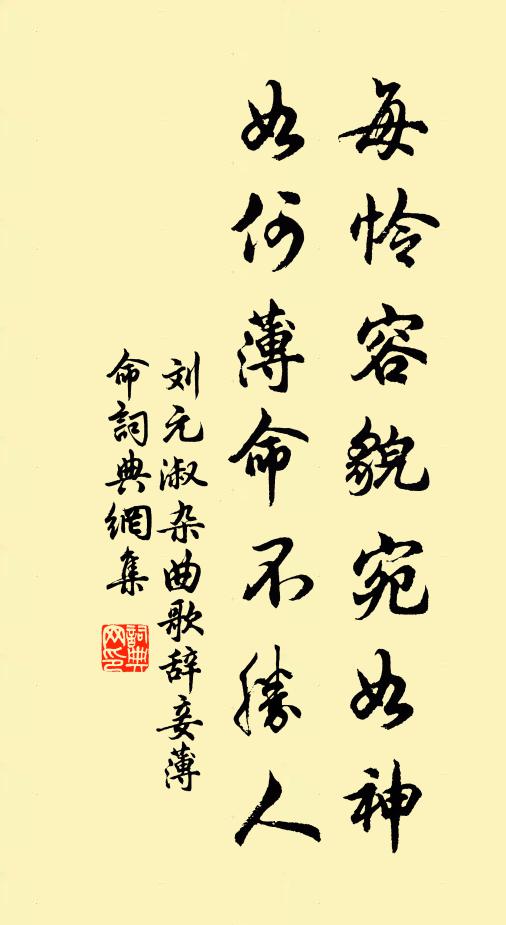 每怜容貌宛如神
如何薄命不勝人
刘元淑杂曲歌辞妾薄
命詞典網集
詞典
网印